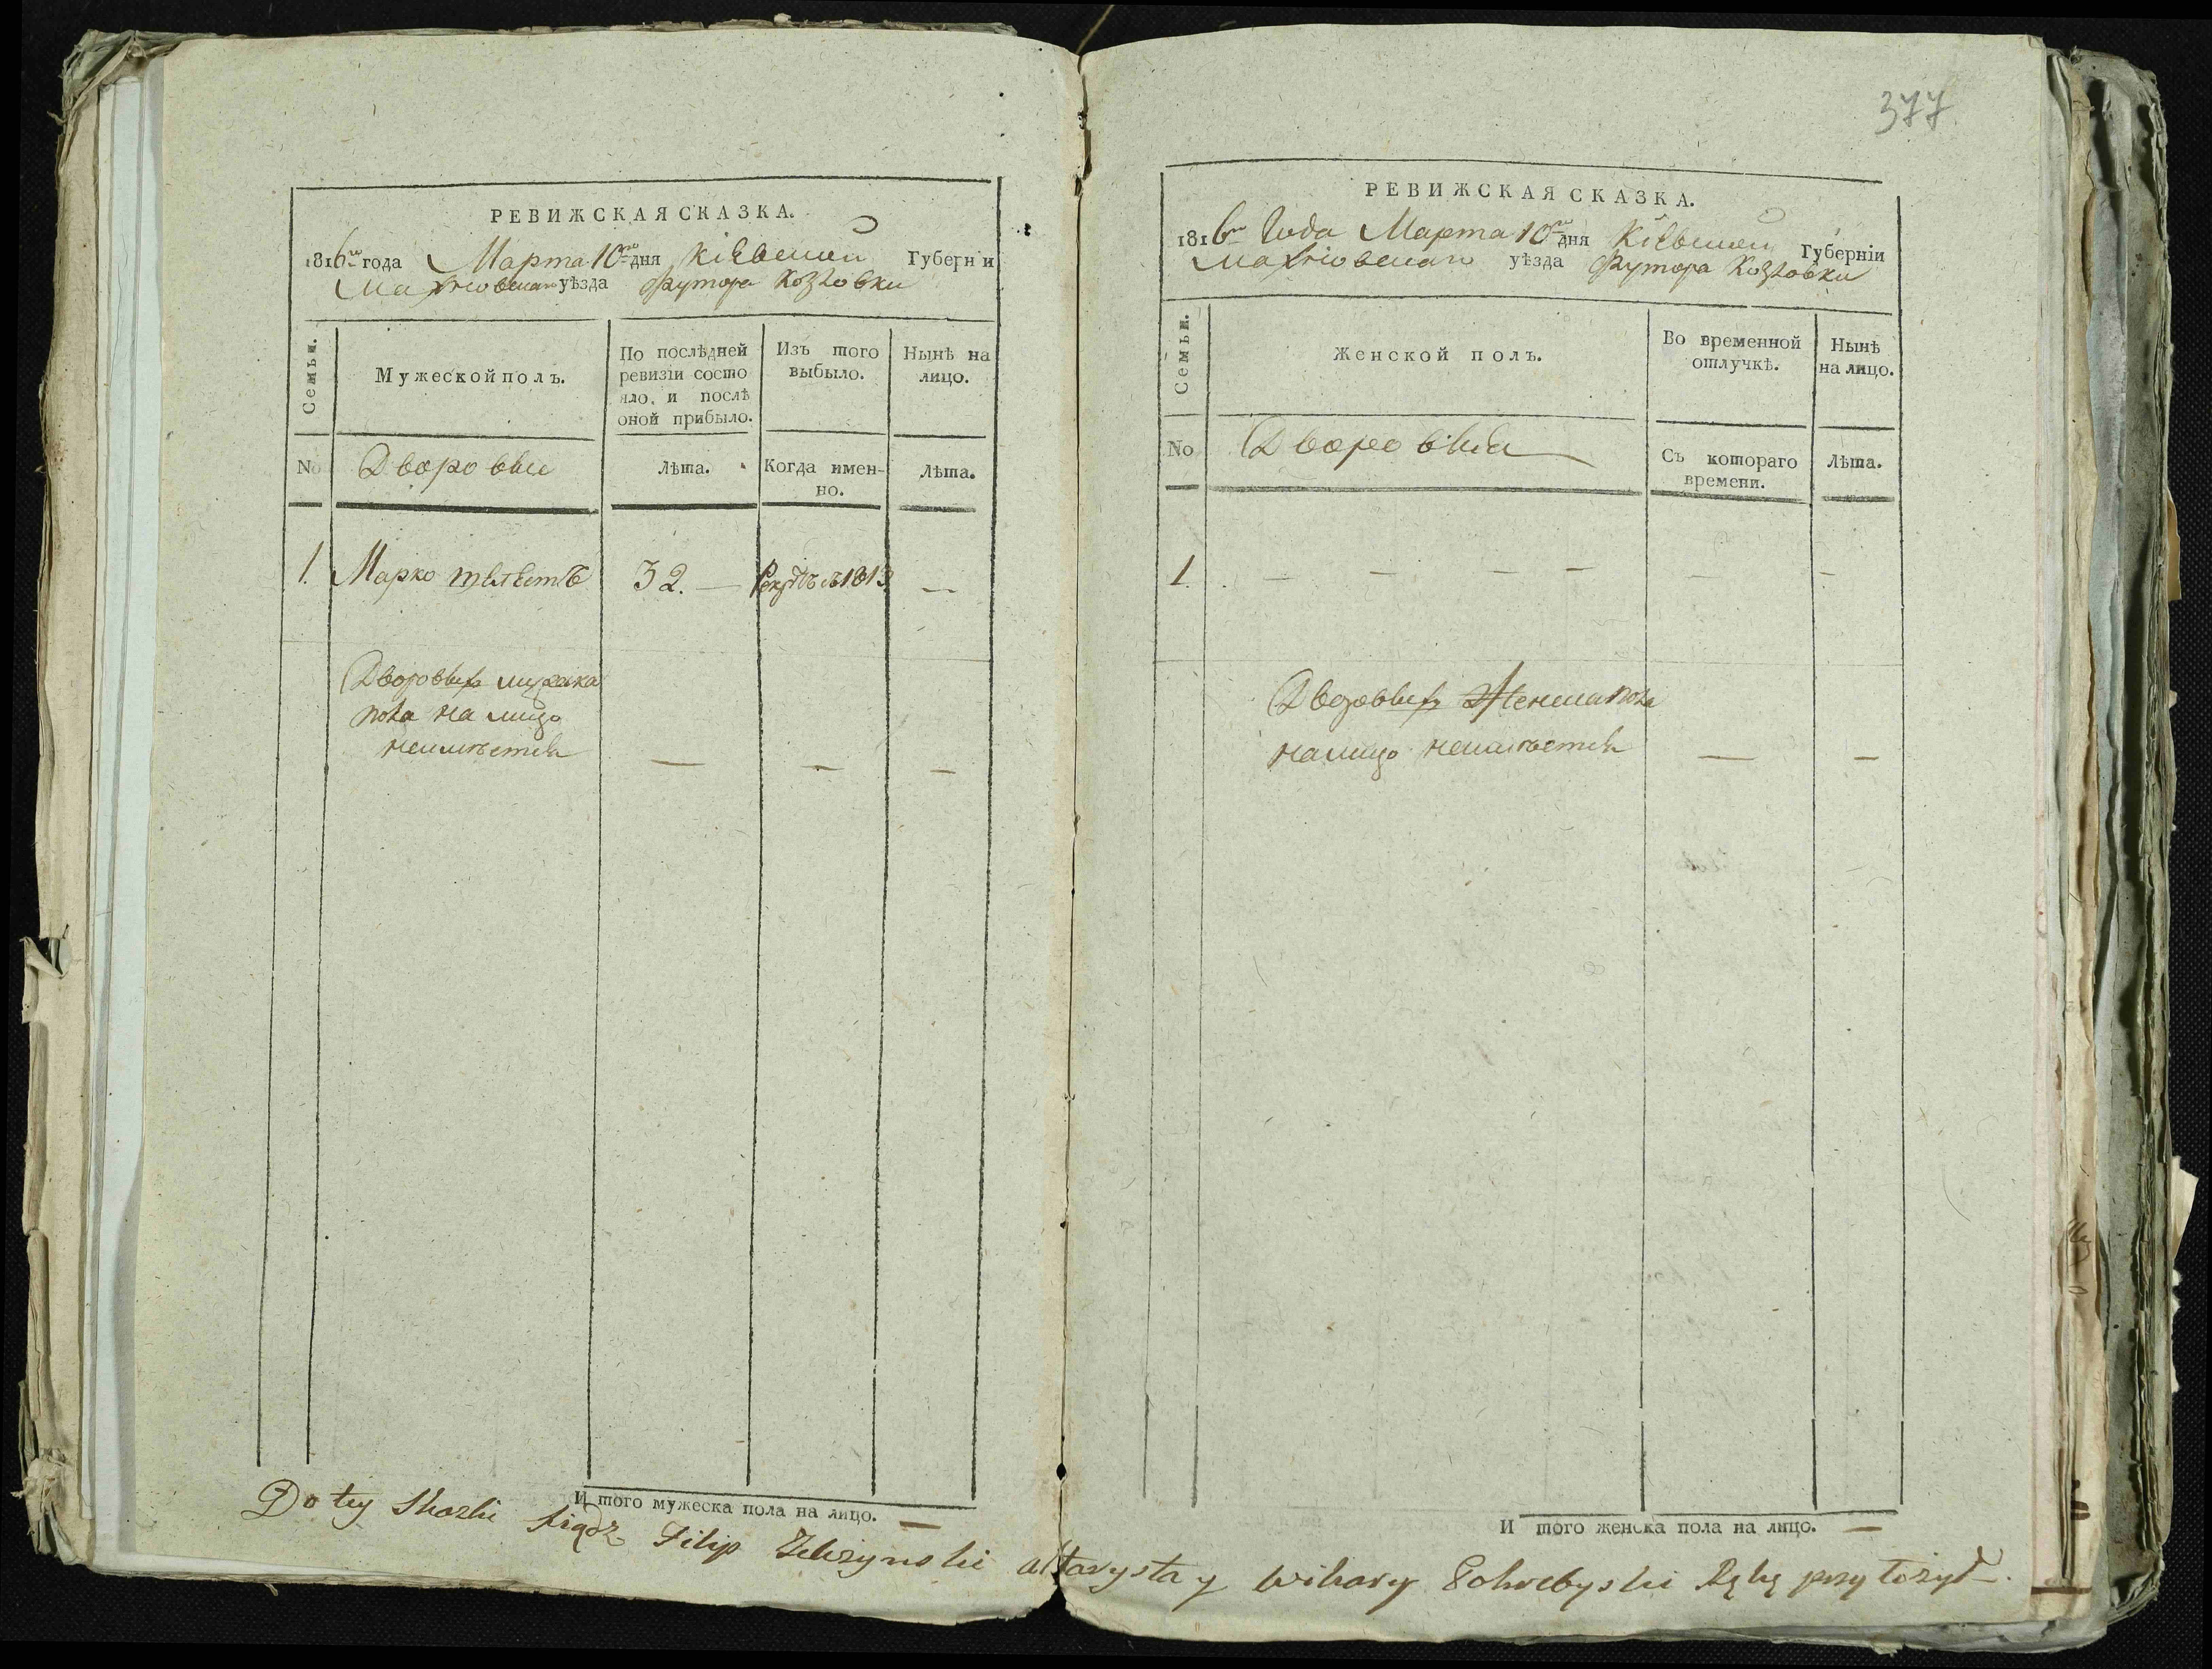 РЕВИЖСКАЯ СКАЗКА.
1816го года Марта 10го дня Кіевской Губерніи
Махновскаго уѣзда Футора Козловки
Семьи.
Мужеской полъ.
По послѣдней ревизіи состо
яло, и послѣ
оной прибыло.
Изъ того
выбыло.
Нынѣ на
лицо.
No
Дворовые
лѣта.
Когда имен-
но.
лѣта.
1. Марко 32. — 1813 —
Дворовыхъ мужска
пола на лицо
неимѣется — — —
И того мужеска пола на лицо. —
377
РЕВИЖСКАЯ СКАЗКА.
1816го Года Марта 10го дня Кіевской Губерніи
Махновскаго уѣзда Футора Козловки
Семьи.
Женской полъ.
Во временной
отлучкѣ.
Нынѣ
на лицо.
No
Дворовыя
Съ котораго
времени.
Лѣта.
1. — — — — — —
Дворовыхъ Женска пола
налицо неимѣется — —
И того женска пола на лицо. —
Do tey Skazki Xiądz Filip altarysta y wikary Pohrebyski Rękę przyłożył.